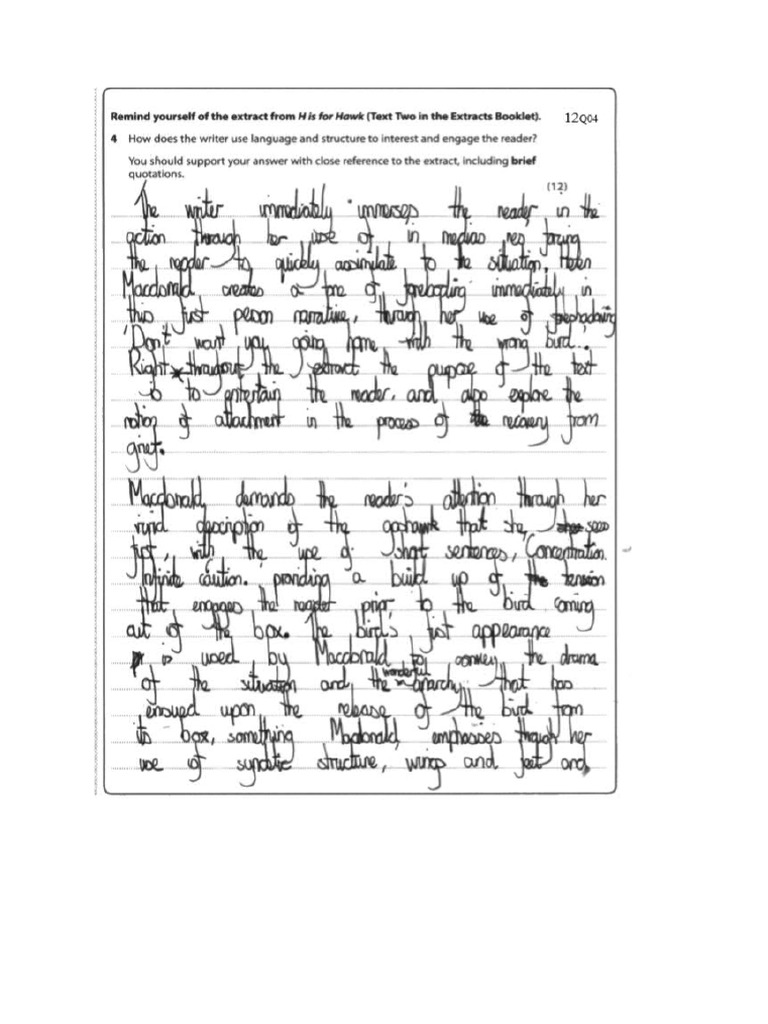 Remind yourself of the extract from H is for Hawk (Text Two in the Extracts Booklet). 12Q04
4 How does the writer use language and structure to interest and engage the reader?
You should support your answer with close reference to the extract, including brief
quotations.
(12)
The writer immediately immerses the reader in the
action through her use of in medias res forcing
the reader to quickly assimilate to the situation. Helen
Macdonald creates a tone of foreboding immediately in
this first person narrative, through her use of foreshadowing
'Don't want you going home with the wrong bird..'
Right throughout the extract the purpose of the text
is to entertain the reader, and also explore the
notion of attachment in the process of recovery from
grief.
Macdonald demands the reader's attention through her
vivid description of the goshawk that she sees
first, with the use of short sentences, 'Concentration.
Infinite caution.' providing a build up of tension
that engages the reader prior to the bird coming
out of the box. The bird's first appearance
is used by Macdonald to convey the drama
of the situation and the wonderful anarchy that has
ensued upon the release of the bird from
its box, something Macdonald emphasises through her
use of syndetic structure, wings and feet and